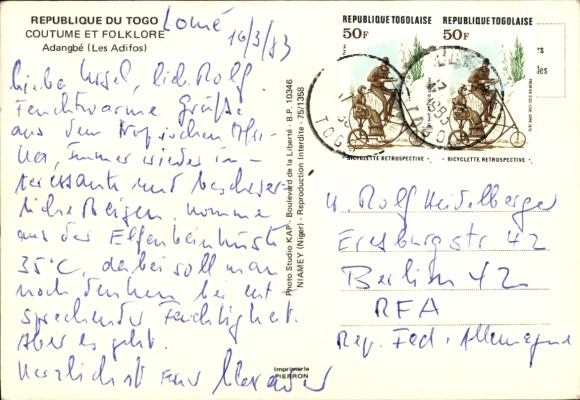 REPUBLIQUE DU TOGO
COUTUME ET FOLKLORE
Adangbé (Les Adifos)
Lomé
16/3/83
Liebe Ursel, lieb. Rolf.
Feuchtwarme Grüße
aus dem tropischen Afri-
ka, immer wieder in-
teressante und
komme
aus der Elfenbeinküste
35°C, dabei soll man
noch denken bei ent-
sprechender Feuchtigkeit.
Aber es geht.
Herzlichst Euer
Photo Studio KAP - Boulevard de la Liberté - B.P. 10346
NIAMEY (Niger) - Reproduction Interdite - 75/1358
Imprimerie
PIERRON
REPUBLIQUE TOGOLAISE
50F
BICYCLETTE RETROSPECTIVE
REPUBLIQUE TOGOLAISE
50F
BICYCLETTE RETROSPECTIVE
TOGO
Rolf Heidelberger
Eresburgstr 42
Berlin 42
RFA
Rep. Fed. Allemagne